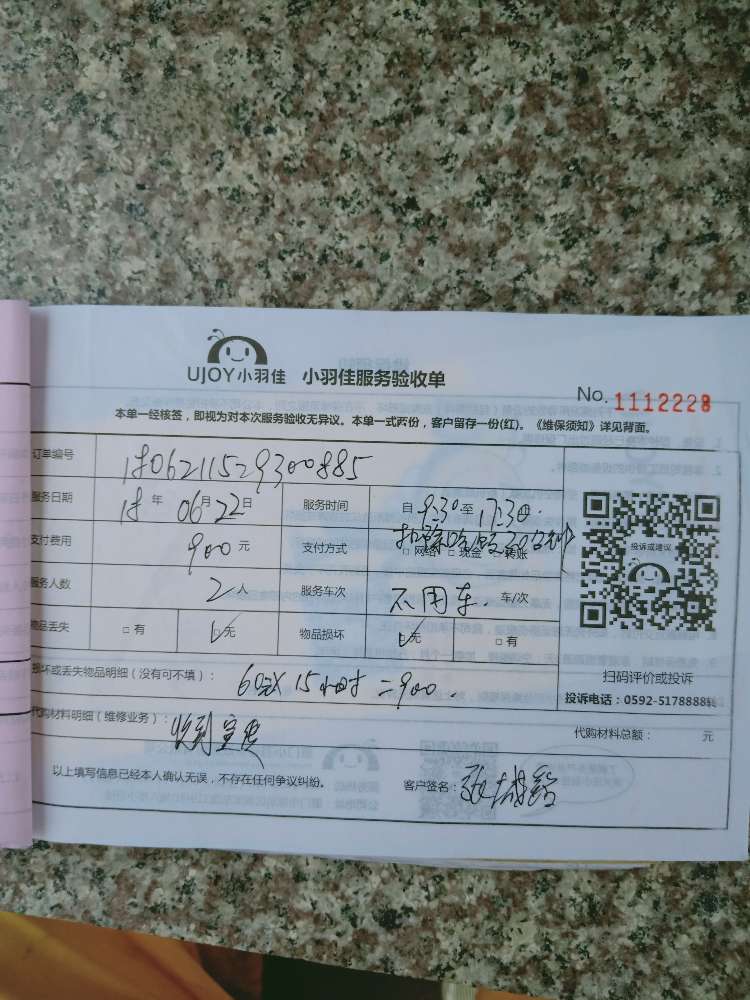 UJOY小羽佳 小羽佳服务验收单
No. 1112228
本单一经核签，即视为对本次服务验收无异议。本单一式两份，客户留存一份(红)。《维保须知》详见背面。
订单编号 1806211529300885
服务日期 18 年 06 月 22 日 服务时间 自 9:30 至 17:30.
扣除吃饭30分钟
支付费用 900 元 支付方式 □ 网络 □ 现金 □ 转账
投诉或建议
服务人数 2 人 服务车次 不用车. 车/次
物品丢失 □ 有 □ 无 物品损坏 □ 无 □ 有
扫码评价或投诉
损坏或丢失物品明细（没有可不填）： 60元X 15小时 =900.
投诉电话：0592-5178888转
代购材料明细（维修业务）： 收到 代购材料总额： 元
以上填写信息已经本人确认无误，不存在任何争议纠纷。 客户签名：